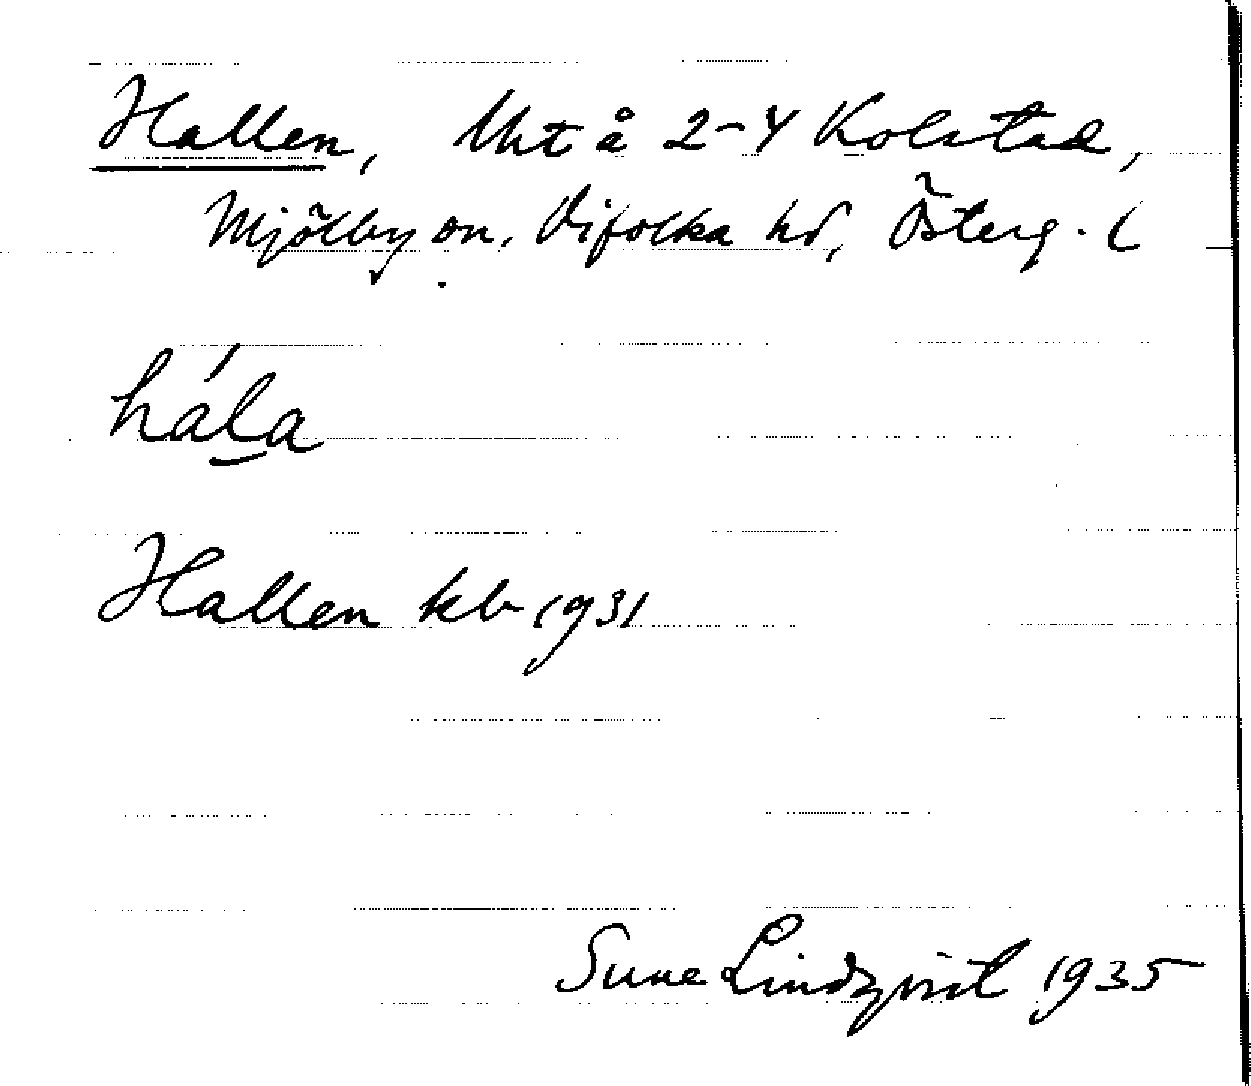 Hallen, Uht å 2-4 Kolstad,
Mjölby sn, Vifolka hd, Österg. l
hála
Hallen kb 1931
Sune Lindqvist 1935